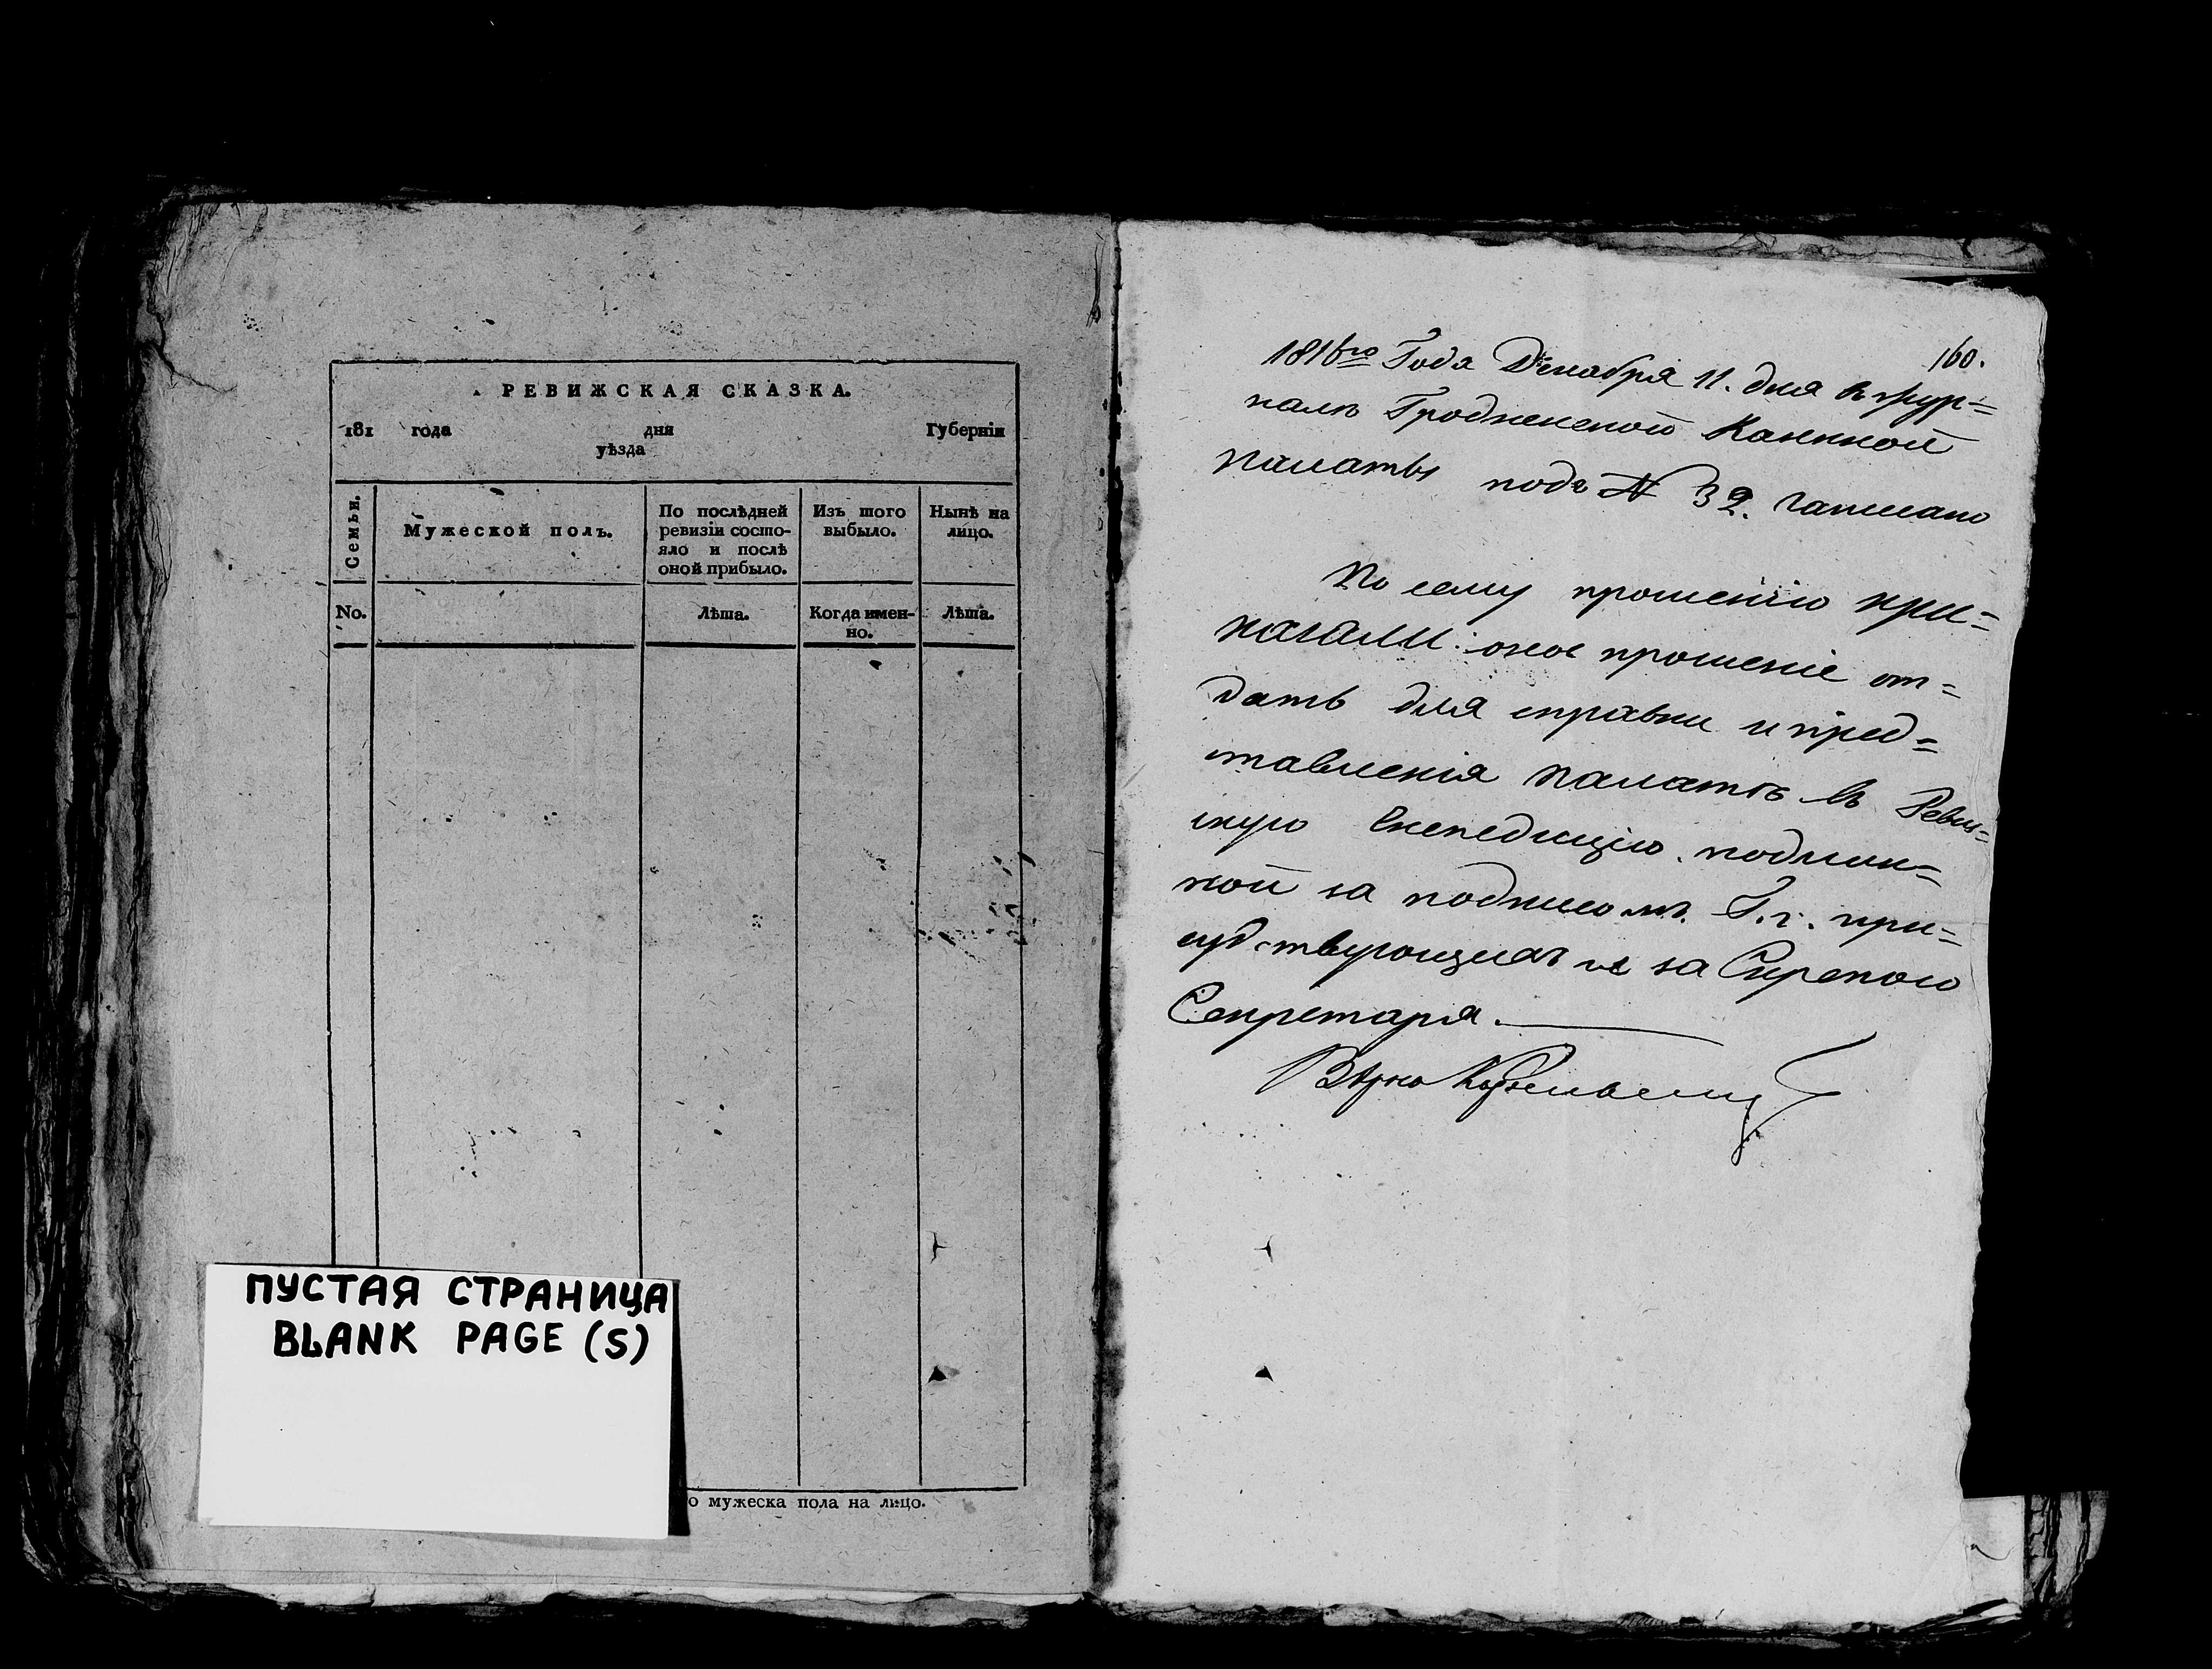 РЕВИЖСКАЯ СКАЗКА.
181 года дня Губерніи
уѣзда
Семьи.
Мужеской полъ.
По послѣдней
ревизіи состо-
яло и послѣ
оной прибыло.
Изъ того
выбыло.
Нынѣ на
лицо.
No.
Лѣта.
Когда имен-
но.
Лѣта.
ПУСТАЯ СТРАНИЦА
BLANK PAGE (S)
о мужеска пола на лицо.
160.
1816го Года Декабря 11. дня в жур=
налѣ Гродненской Казенной
палаты подъ N 32. записано
По сему прошенію при=
казали: оное прошеніе от=
дать для справки и пред=
ставленія палатѣ въ Реви=
скую Експедицію. подлин=
ной за подписомъ Г.г. при=
судствующихъ и за Скрепою
Секретаря.
Вѣрно